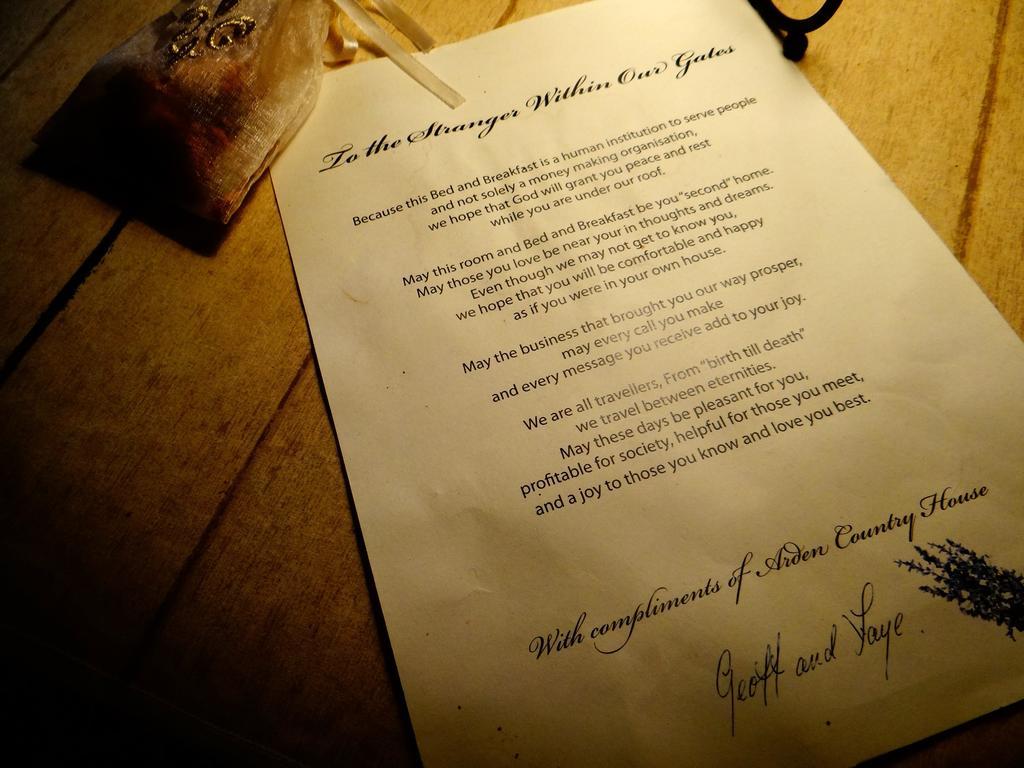 To the Stranger Within Our Gates
Because this Bed and Breakfast is a human institution to serve people
and not solely a money making organisation,
we hope that God will grant you peace and rest
while you are under our roof.
May this room and Bed and Breakfast be you "second" home.
May those you love be near your in thoughts and dreams.
Even though we may not get to know you,
we hope that you will be comfortable and happy
as if you were in your own house.
May the business that brought you our way prosper,
may every call you make
and every message you receive add to your joy.
We are all travellers, From "birth till death"
we travel between eternities.
May these days be pleasant for you,
profitable for society, helpful for those you meet,
and a joy to those you know and love you best.
With compliments of Arden Country House
Geoff and Faye.